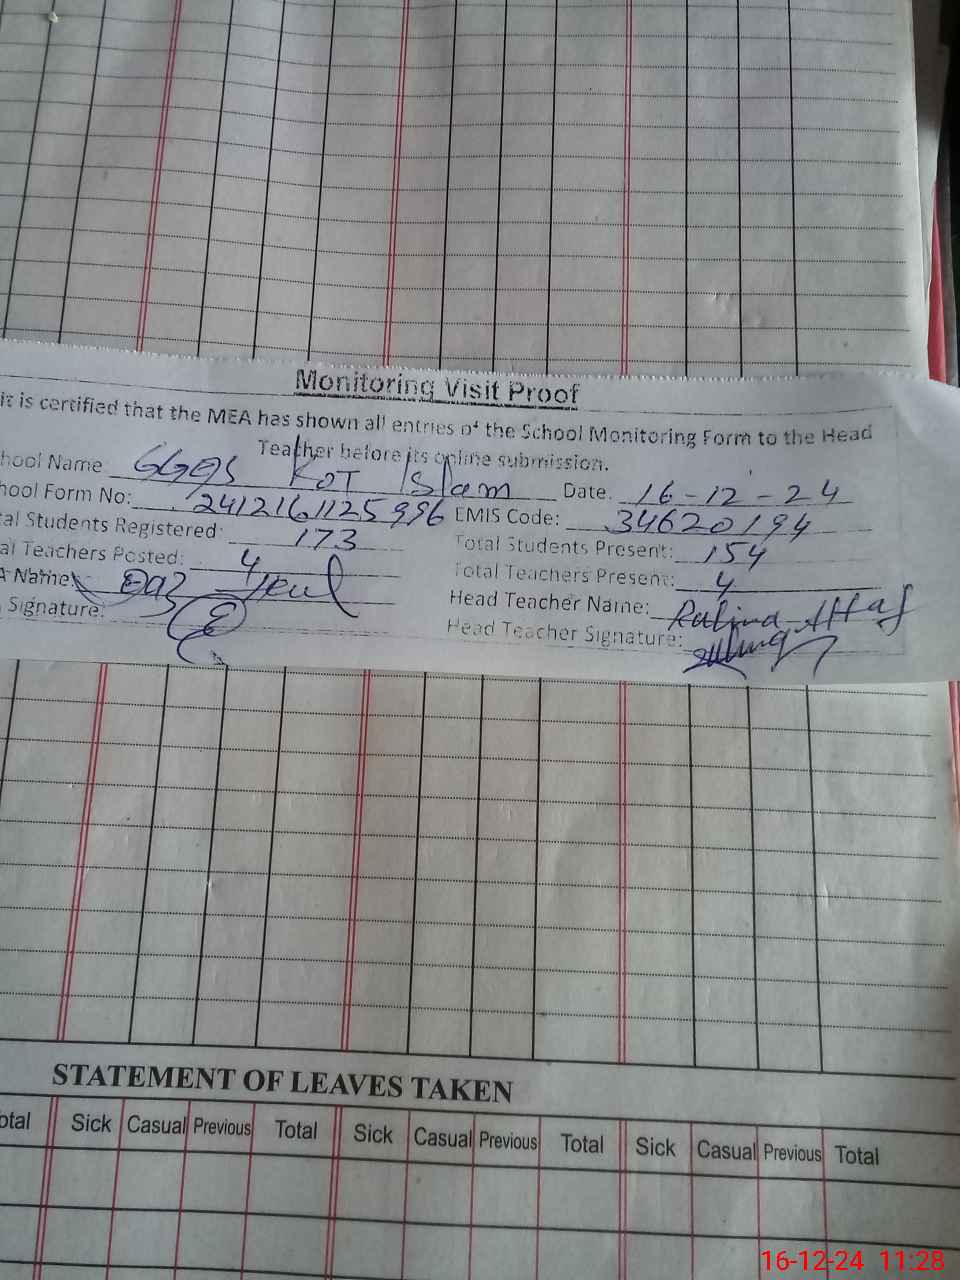 Monitoring Visit Proof
it is certified that the MEA has shown all entries of the School Monitoring Form to the Head
Teacher before its online submission.
hool Name GGES Kot Islam Date. 16-12-24
hool Form No: 2412161125996 EMIS Code: 34620194
tal Students Registered: 173 Total Students Present: 154
al Teachers Posted: 4 Total Teachers Present: 4
A Name: Head Teacher Name: Altaf
Signature: Head Teacher Signature:
STATEMENT OF LEAVES TAKEN
otal Sick Casual Previous Total Sick Casual Previous Total Sick Casual Previous Total
16-12-24 11:28